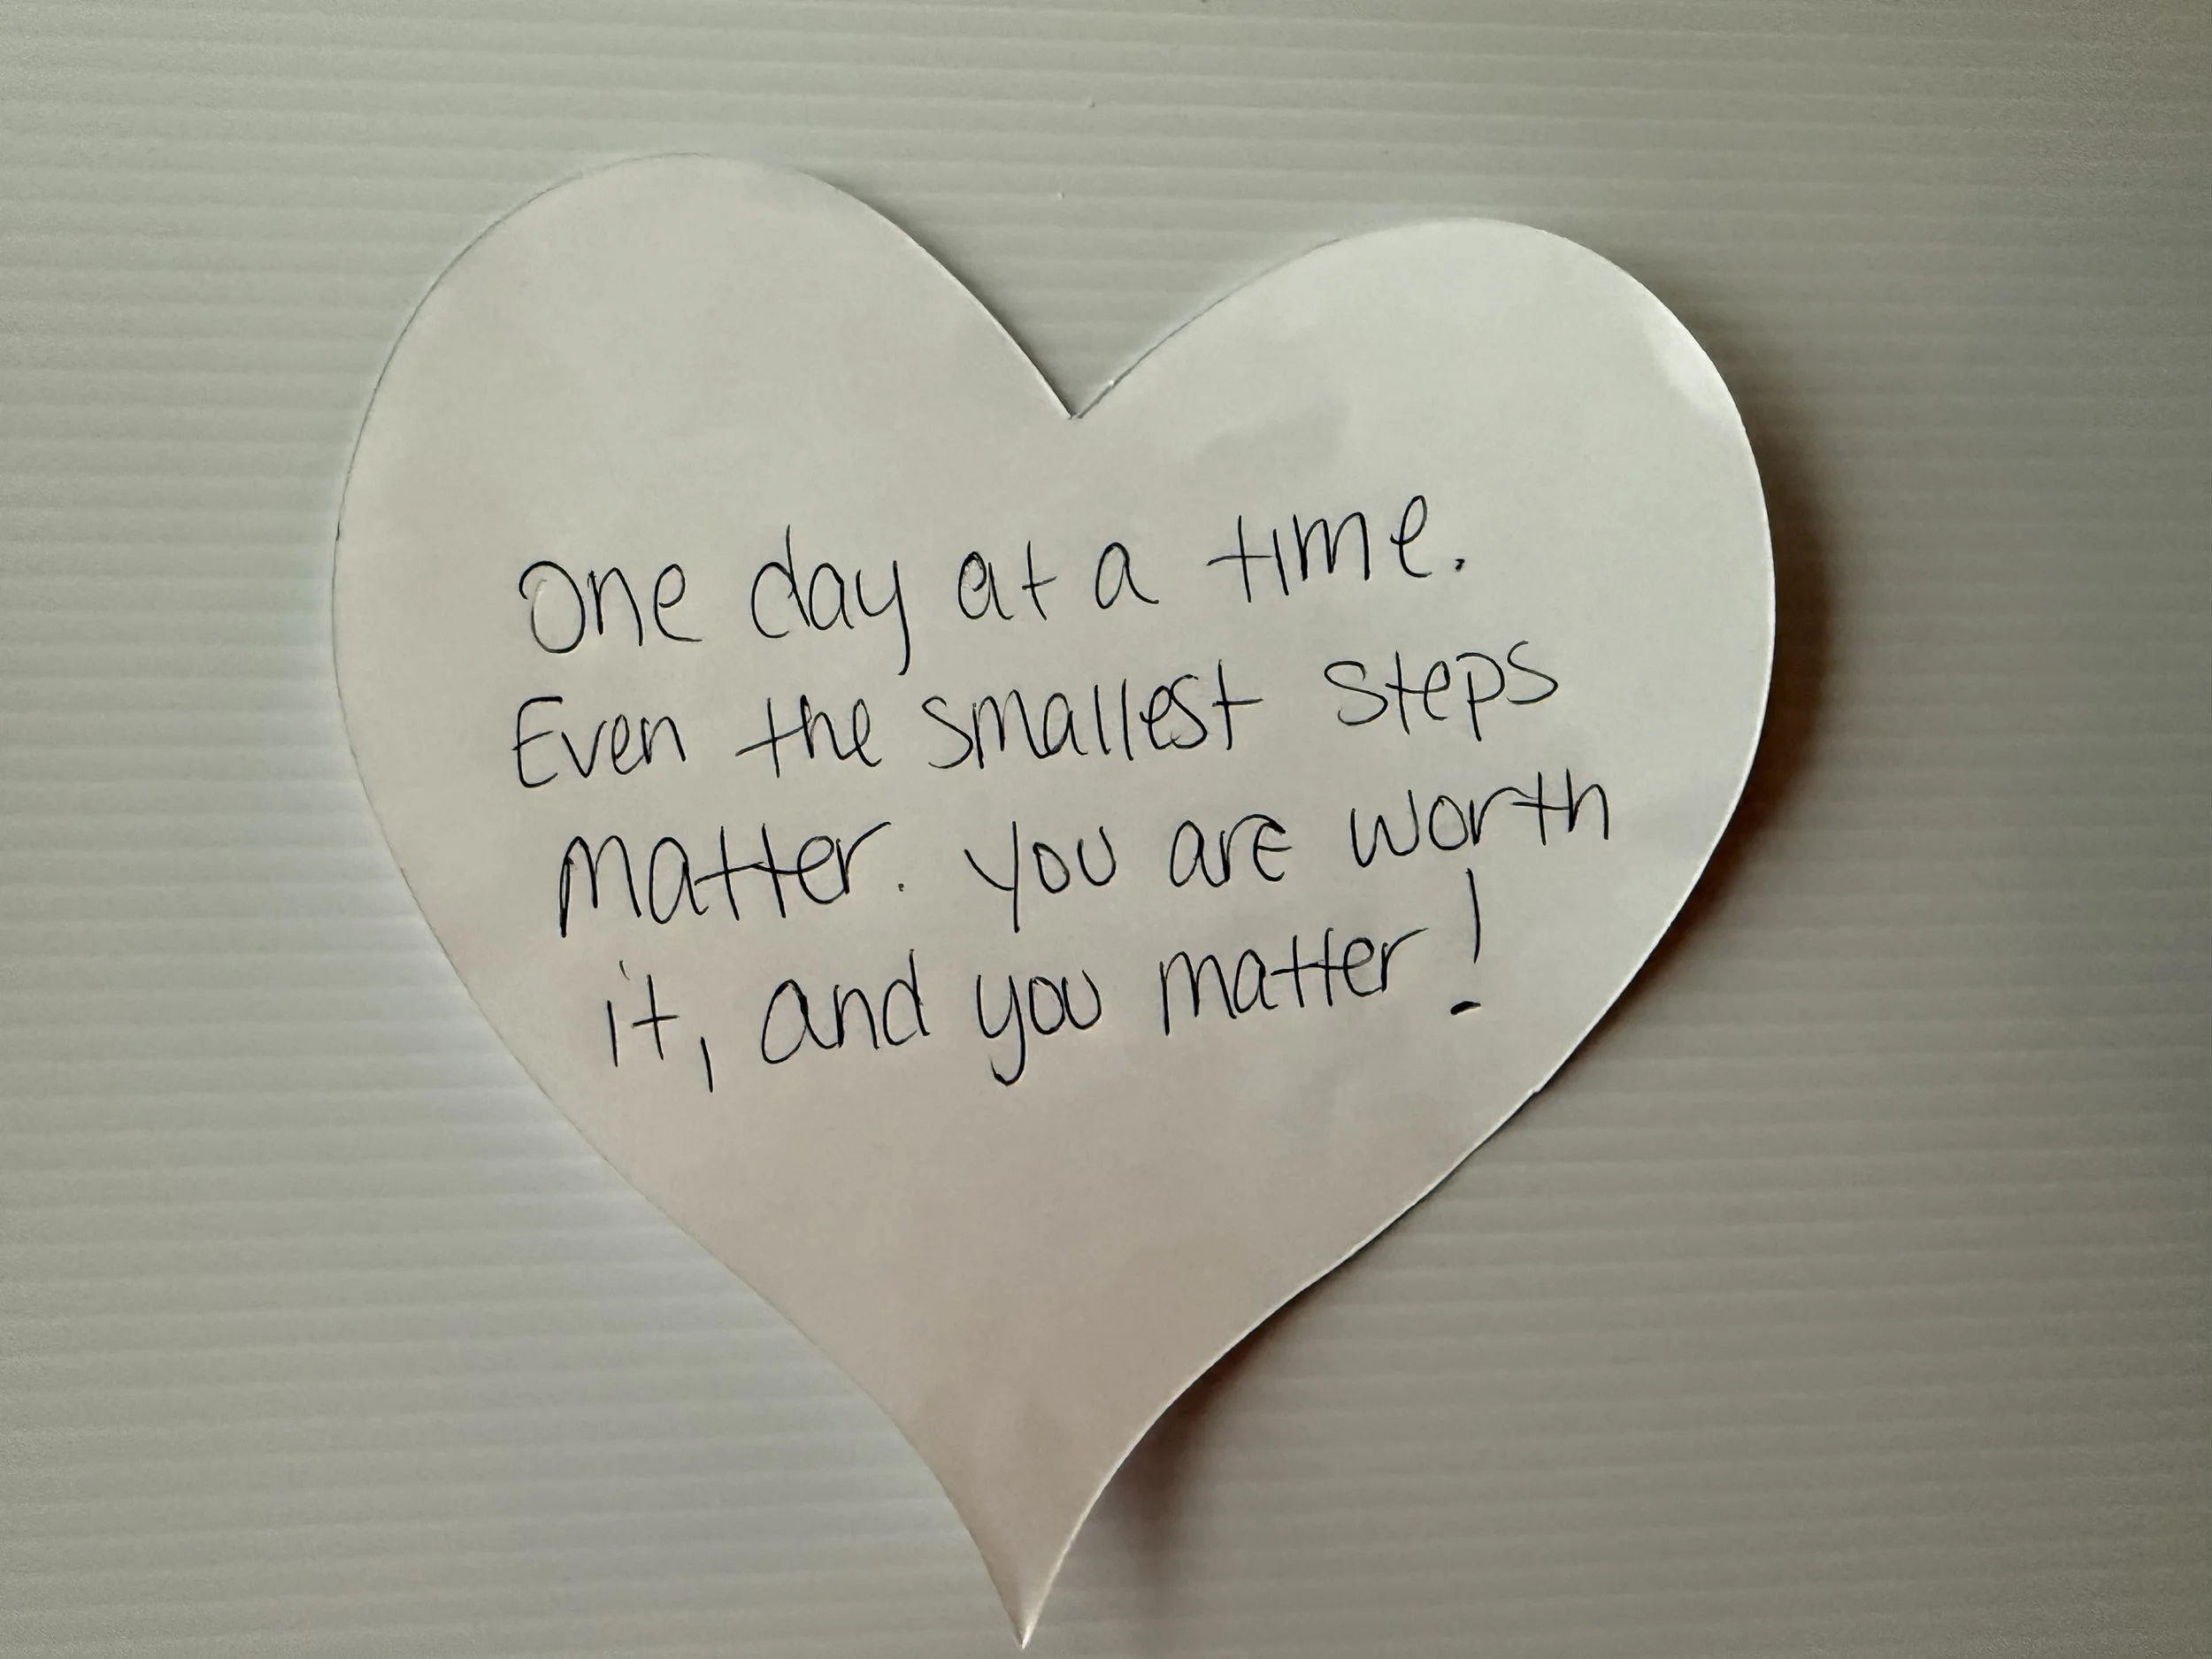 One day at a time.
Even the smallest steps
matter. You are worth
it, and you matter!